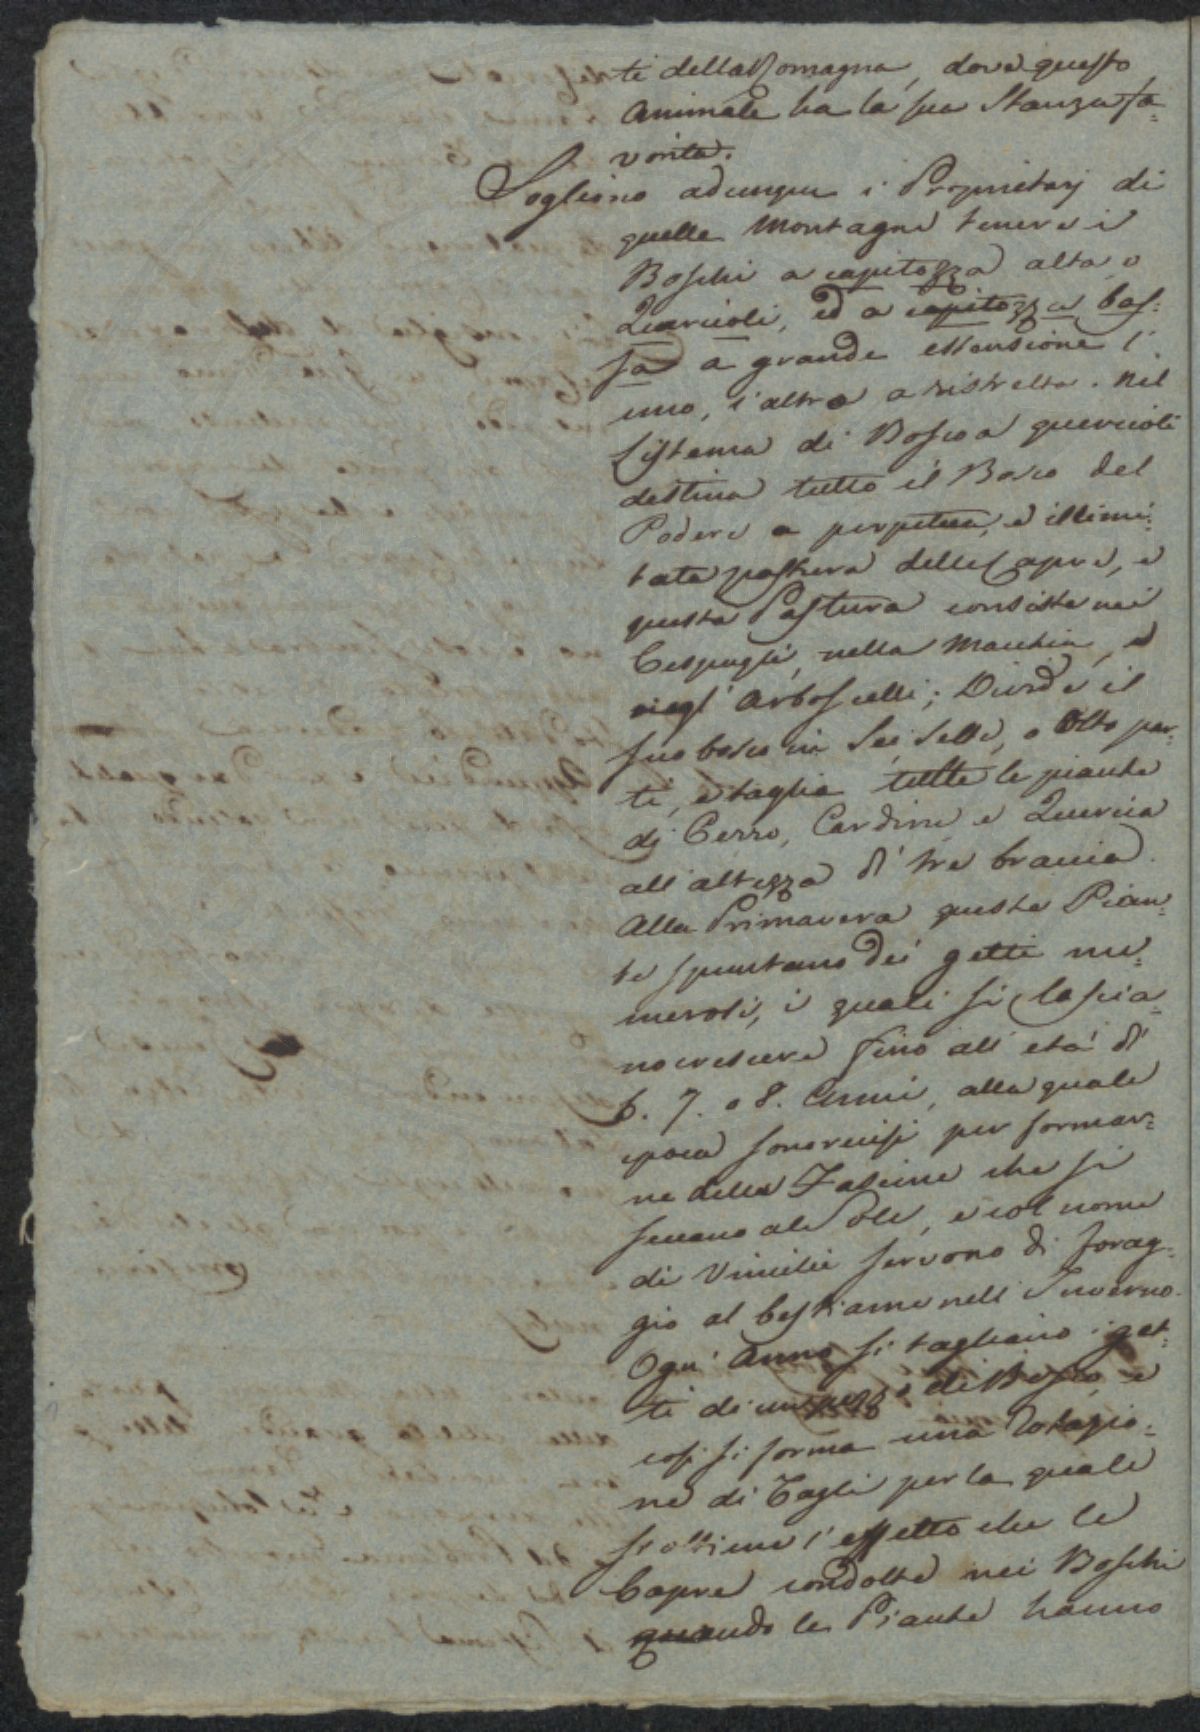 ti della Romagna, dove questo
Animale ha la sua Stanza fa-
vorita.
Sogliono adunque i Proprietarj di
quelle Montagne tenere i
Boschi a capitozza alta, o
Quercioli, ed a capitozza bas-
sa a grande estensione l'
uno, l'altro a ristretta. Nel
Sistema di Bosco a quercioli
destina tutto il Bosco del
Podere a perpetua, e illimi-
tata pastura delle Capre, e
questa Pastura consiste nei
Cespugli, nella Macchia, e
negl' Arboscelli; Divide il
suo bosco in Sei Sette, o Otto par-
ti, e taglia tutte le piante
di Cerro, Cardine e Quercia
all'altezza di tre braccia.
Alla Primavera queste Pian-
te spuntano dei getti nu-
merosi, i quali si lascia-
no crescere fino all'età di
6. 7. o 8. Anni, alla quale
epoca sono recisi per formar-
ne delle Fascine che si
seccano al Sole, e col nome
di Vincili servono di forag-
gio al bestiame nell'Inverno.
Ogn' Anno si tagliano i get-
ti di un pezzo di Bosco, e
così si forma una Rotazio-
ne di Tagli per la quale
si ottiene l'effetto che le
Capre condotte nei Boschi
quando le Piante hanno